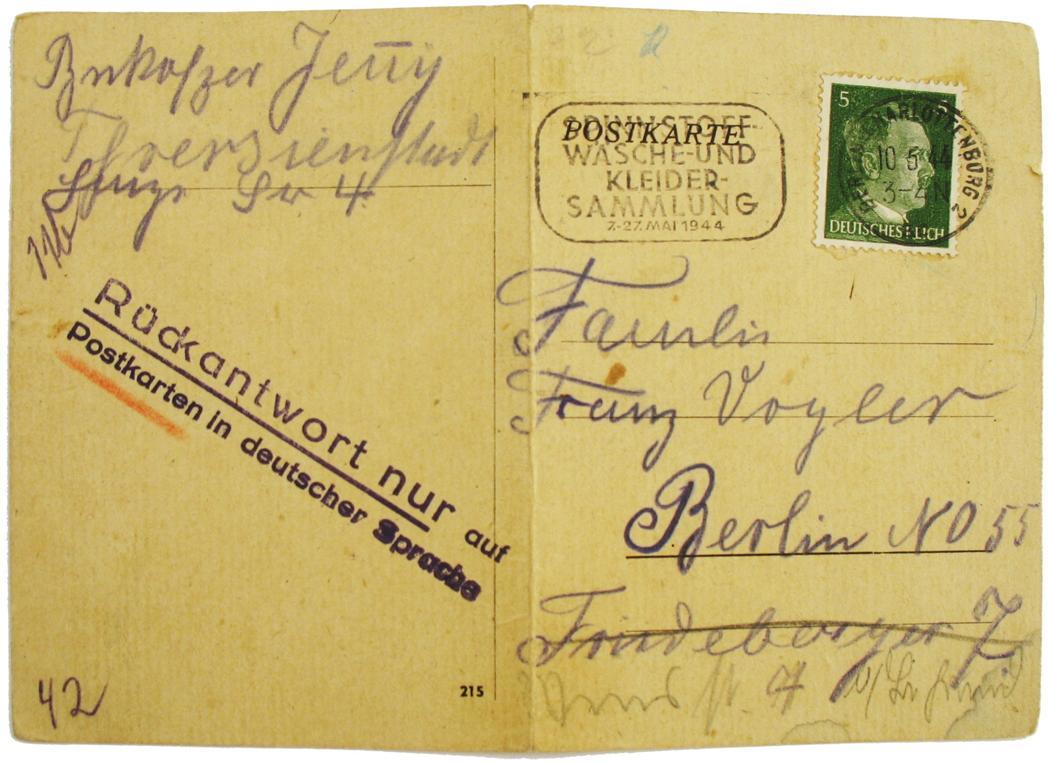 Jenny
Theresienstadt
Lange Str 4
Rückantwort nur auf
Postkarten in deutscher Sprache
42
215
POSTKARTE
SPINNSTOFF-
WÄSCHE-UND
KLEIDER-
SAMMLUNG
7.-27. MAI 1944
5
CHARLOTTENBURG 2
10 5 44
DEUTSCHES REICH
Familie
Franz Vogler
Berlin NO 55
7